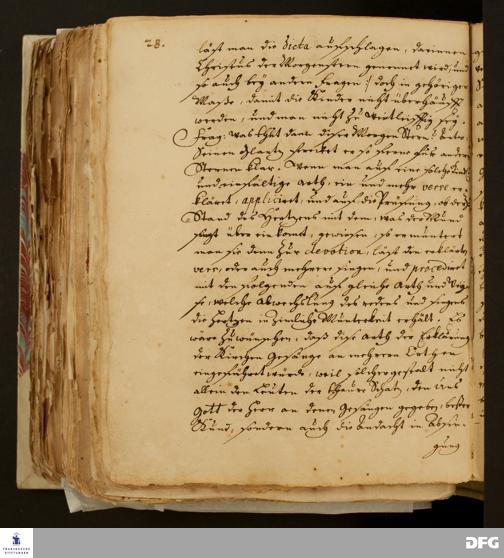 28.
läst man die dicta aufschlagen, darinnen
Christus der Morgenstern genennet wird, und
so auch bey andern fragen /: doch in gehöriger
Maße, damit die Kinder nicht überhäufft
werden, und man nicht zu weitläufftig sey.
Frag: was thut dann dieser Morgen Stern? Antw.
Seinen Glantz strecket er so ferne für andern
Sternen klar. Wenn man auf eine solche
und einfältige arth, ein und mehr verse er-
kläret, appliciret, und auf die Prüfung, ob der
Stand des Hertzens mit dem, was der Mund
singt über ein komt, gewiesen, so ermuntert
man sie denn zur devotion, läst den erklärten
vers, oder auch mehrere singen, und procediret
mit den folgenden auf gleiche arth und Wei-
se, welche abwechselung des redens und singens
die Hertzen in ziemliche Munterkeit erhält. Es
wäre zu wünschen, daß diese arth der Erklärung
der Kirchen Gesänge an mehreren Orthen
eingeführet würde, weil solcher gestalt nicht
allein den Leuten der theure Schatz, den uns
Gott der Herr an denen Gesängen gegeben, besser
Kund, sondern auch die andacht in Absin-
gung
FRANCKESCHE STIFTUNGEN
DFG